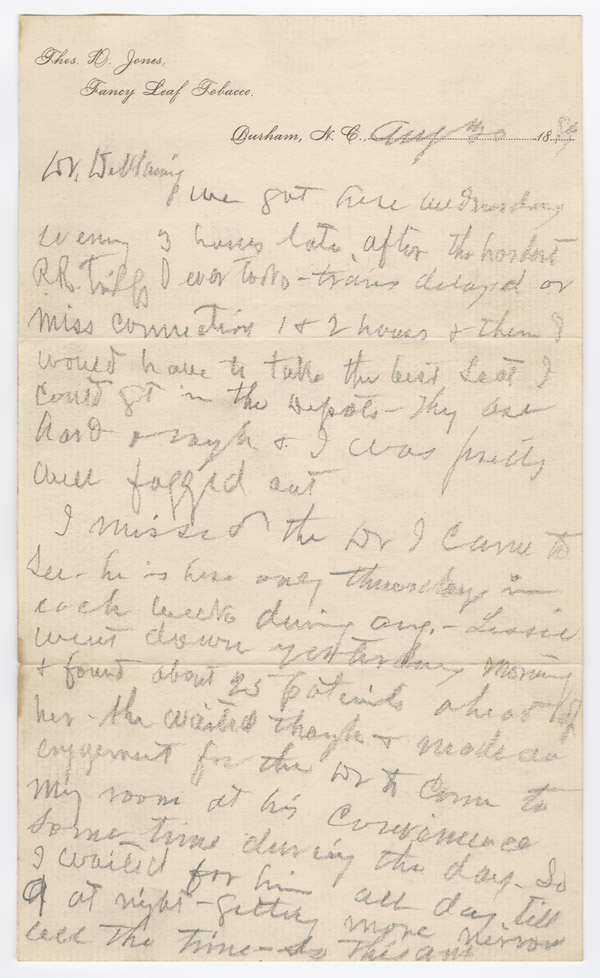 Thos. D. Jones,
Fancy Leaf Tobacco.
Durham, N. C., Aug 30 1889
Dr.
We got here Wednesday
evening 3 hours late, after the hardest
R.R. trip I ever took - trains delayed or
miss connection 1 & 2 hours & then I
would have to take the best seat I
could get in the depots - They are
hard & rough & I was pretty
well fagged out
I missed the Dr I came to
see - he is here only thursdays in
each week during Aug. - Lessie
went down yesterday morning
& found about 25 patients ahead of
her - She waited though & made an
engagement for the Dr to come to
my room at his convenience
some time during the day - So
I waited for him all day, till
9 at night - getting more nervous
all the time - So this am